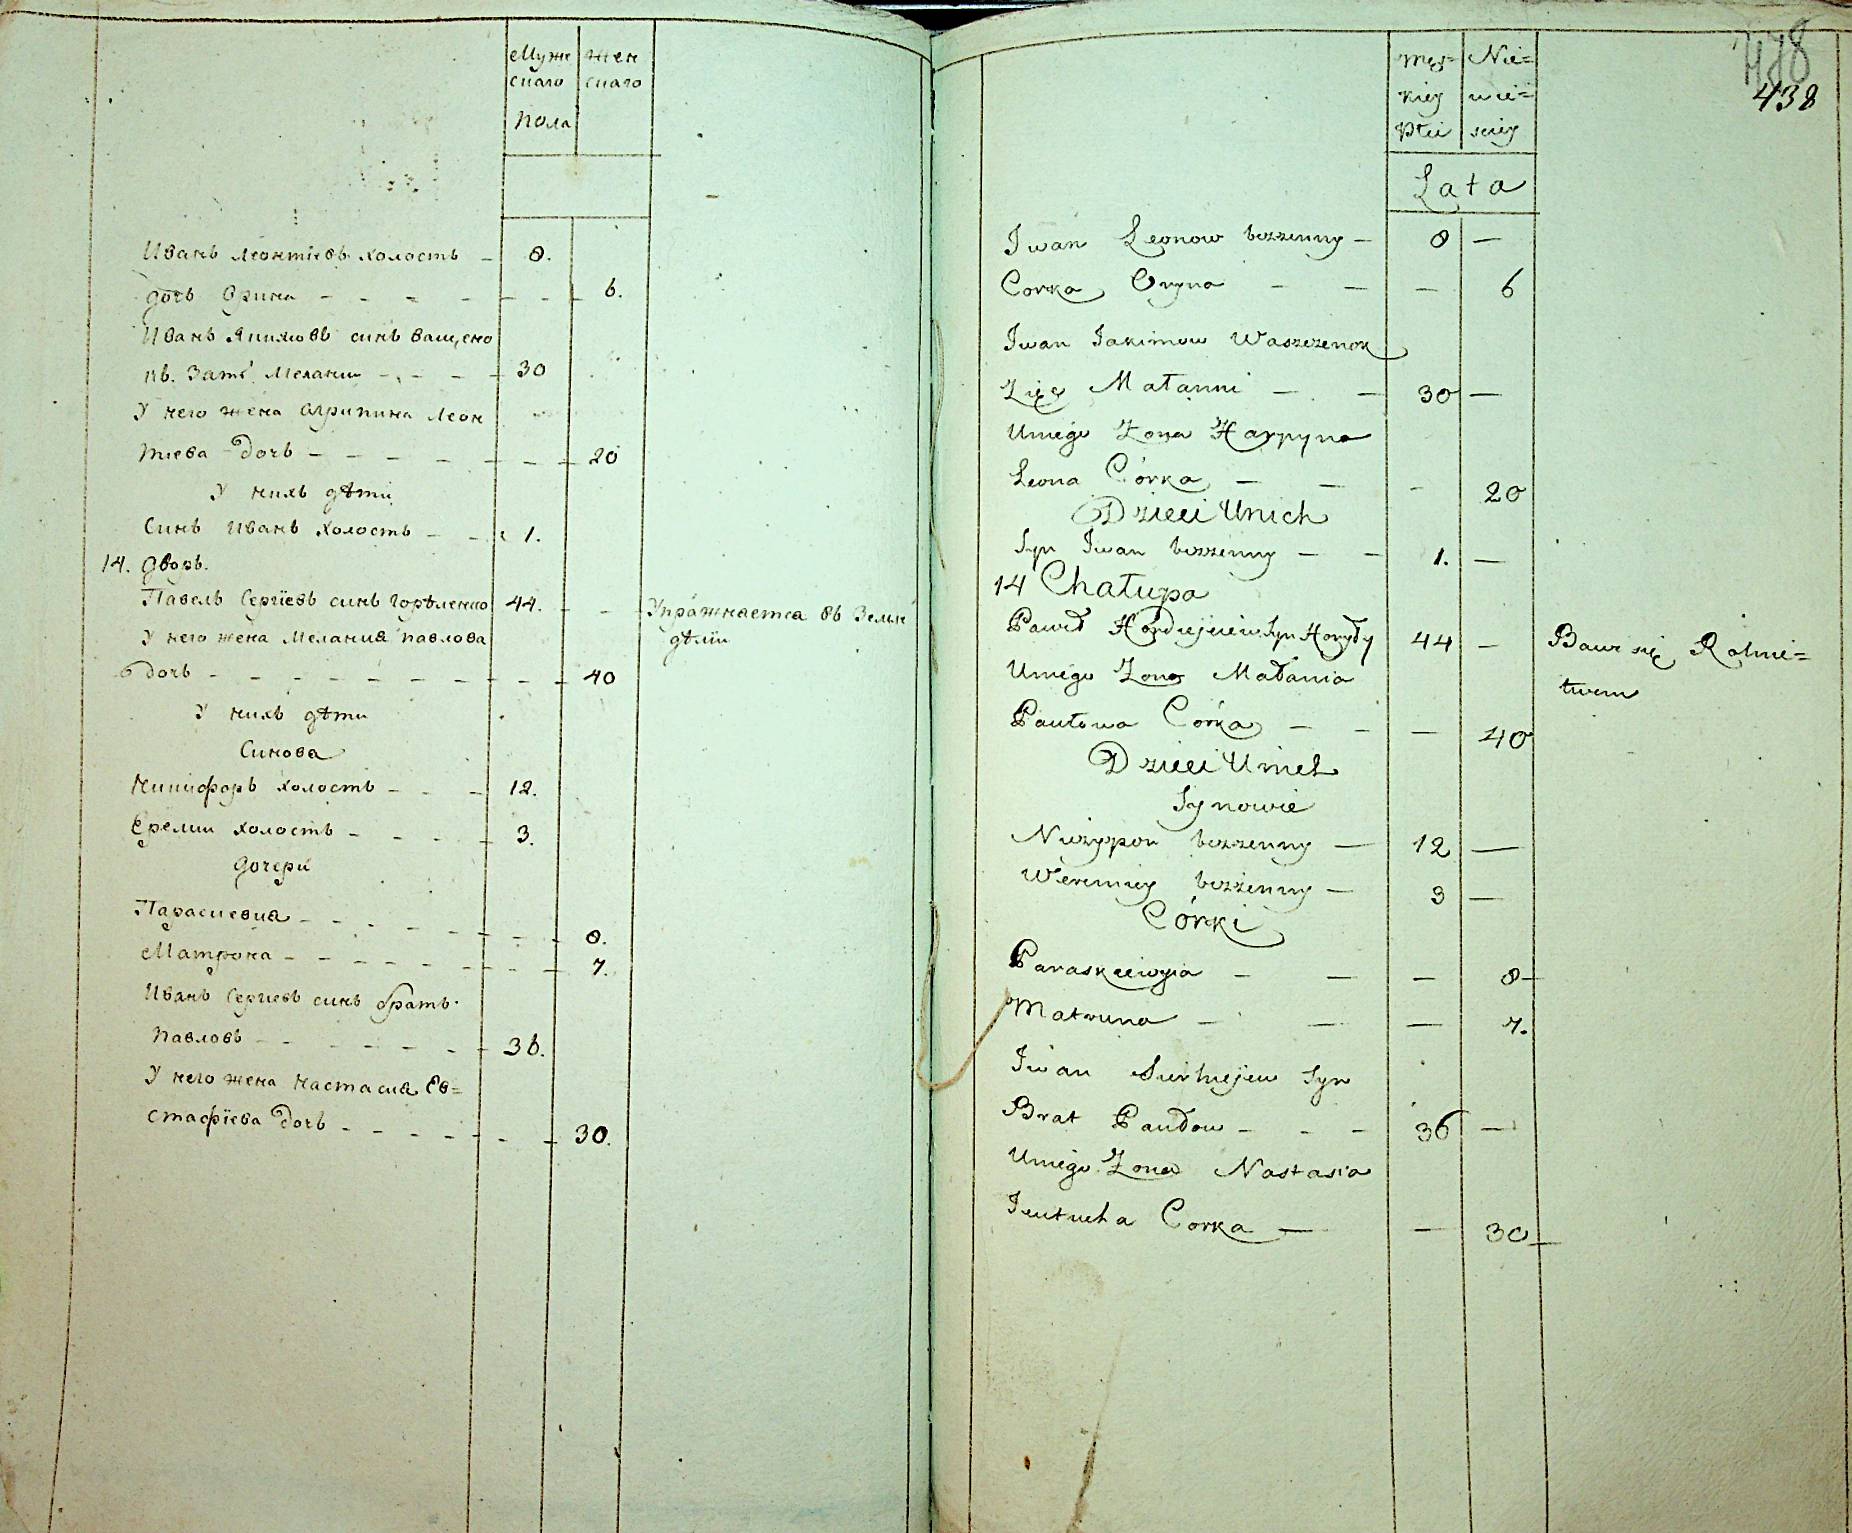 Муж жен
скаго скаго
пола
Иванъ Леонтіевъ холостъ - 8.
дочь Орина - - - - - - - 6.
Иванъ Якимовъ синъ Ващено
къ. Зать Мелании - - - - 30
У него жена Агрипина Леон
тіева дочь - - - - - - - 20
У нихъ дѣти
Синъ Иванъ холостъ - - 1.
14. дворъ.
Павелъ Сергіевъ синъ Горѣленко 44. - - Упражняется въ Земле
У него жена Мелания Павлова дѣлии
дочь - - - - - - - - - 40
У нихъ дѣти
Синова
Никифоръ холостъ - - - 12.
Еремии холостъ - - - - 3.
дочери
Параскевия - - - - - - - 8.
Матрона - - - - - - - - 7.
Иванъ Сергиевъ синъ братъ
Павловъ - - - - - - 36.
У него жена Настасия Ев=
стафіева дочь - - - - - - - 30.
478
438
męs= Nie=
kiey wie=
płci sciey
Lata
Iwan Leonow bezzenny - 8 -
Corka Oryna - - - 6
Iwan Iakimow Waszczenok
Zięć Małanni - - 30 -
Uniego Zona Harpyna
Leona Córka - - - 20
Dzieci Unich
Syn Iwan bezzenny - - 1. -
14 Chałupa
Paweł Syn 44 - Bawi się Rolnic=
Uniego Zona Małania twem
Pawłowa Corka - - - 40
Dzieci Unich
Synowie
bezzenny - 12 -
Weremiey bezżenny - 3 -
Córki
Paraskiewija - - - 8 -
Matruna - - - 7.
Iwan Sierhiejew Syn
Brat Pawłow - - - 36 -
Uniego Zona Nastasia
Corka - - 30 -